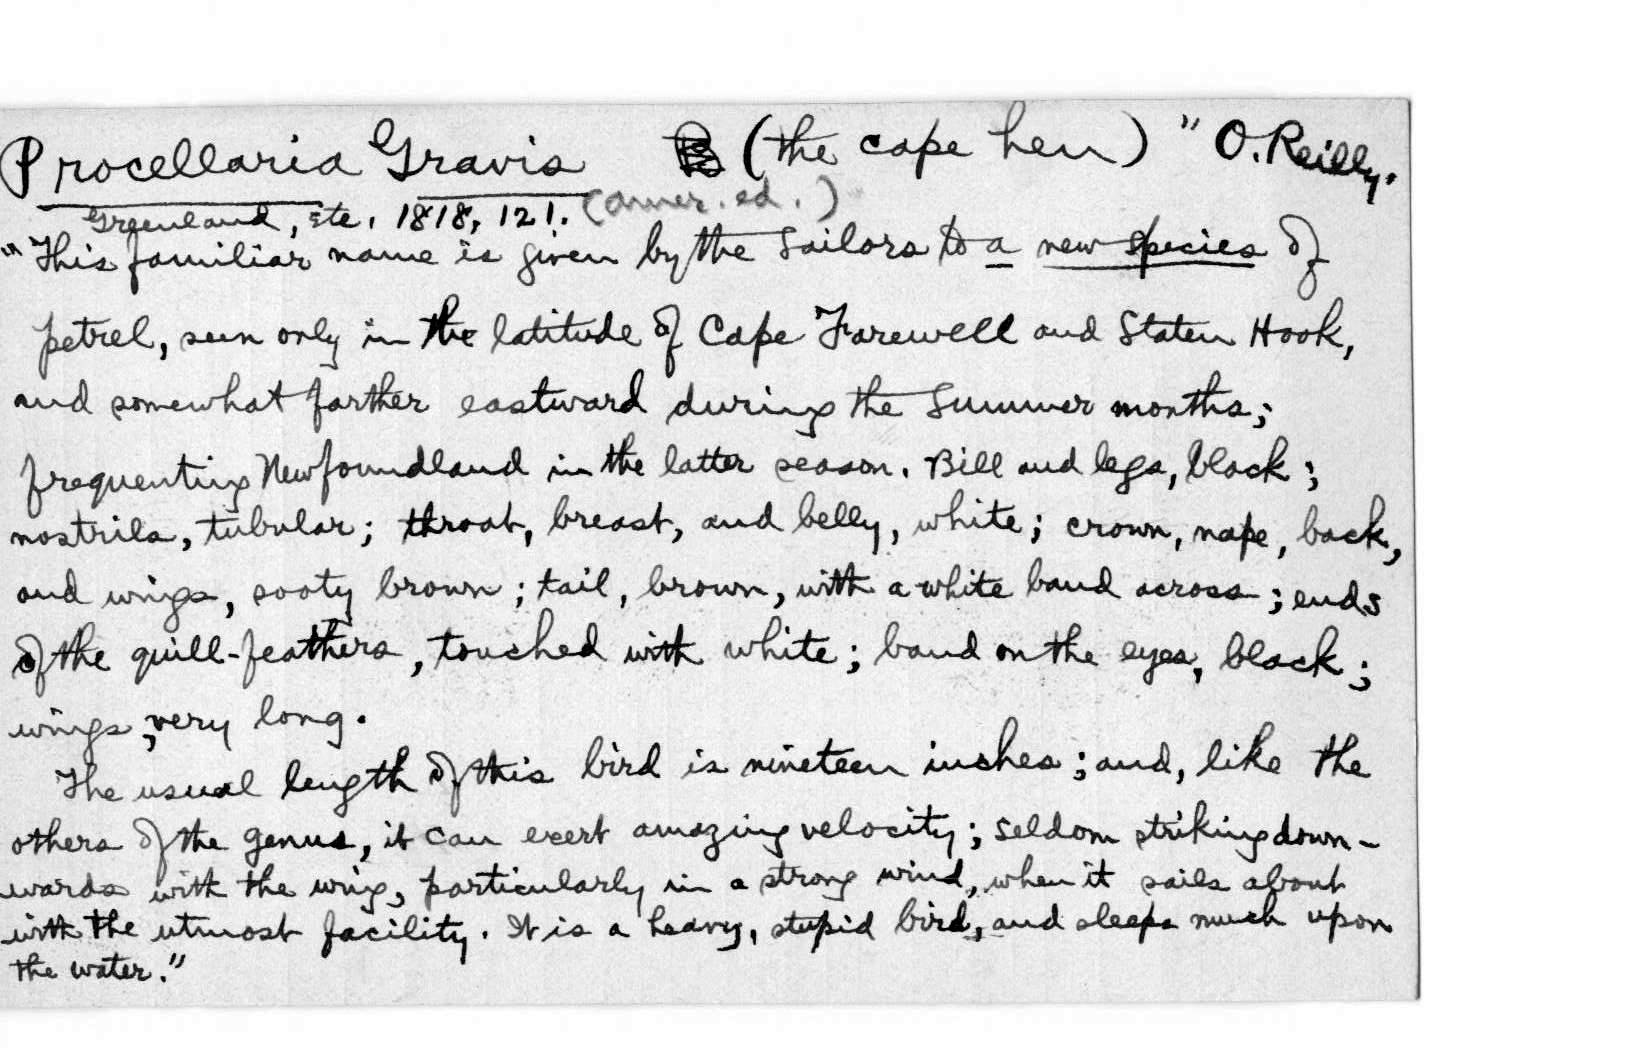 Procellaria Gravis (the cape hen) " O.Reilly.
Greenland, etc. 1818, 121. (Amer. ed.)
"This familiar name is given by the Sailors to a new species of
petrel, seen only in the latitude of Cape Farewell and Staten Hook,
and somewhat farther eastward during the Summer months;
frequenting Newfoundland in the latter season. Bill and legs, black;
nostrils, tubular; throat, breast, and belly, white; crown, nape, back,
and wings, sooty brown; tail, brown, with a white band across; ends
of the quill-feathers, touched with white; band on the eyes, black;
wings, very long.
The usual length of this bird is nineteen inches; and, like the
others of the genus, it can exert amazing velocity; seldom striking down-
wards with the wing, particularly in a strong wind, when it sails about
with the utmost facility. It is a heavy, stupid bird, and sleeps much upon
the water."